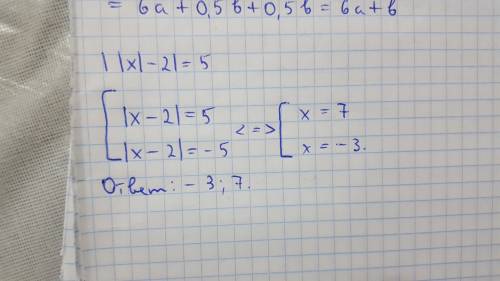 = 6a + 0,5b + 0,5b = 6a + b
| |x| - 2| = 5
[ |x - 2| = 5
|x - 2| = - 5 <=> [ x = 7
x = - 3.
Ответ: - 3; 7.